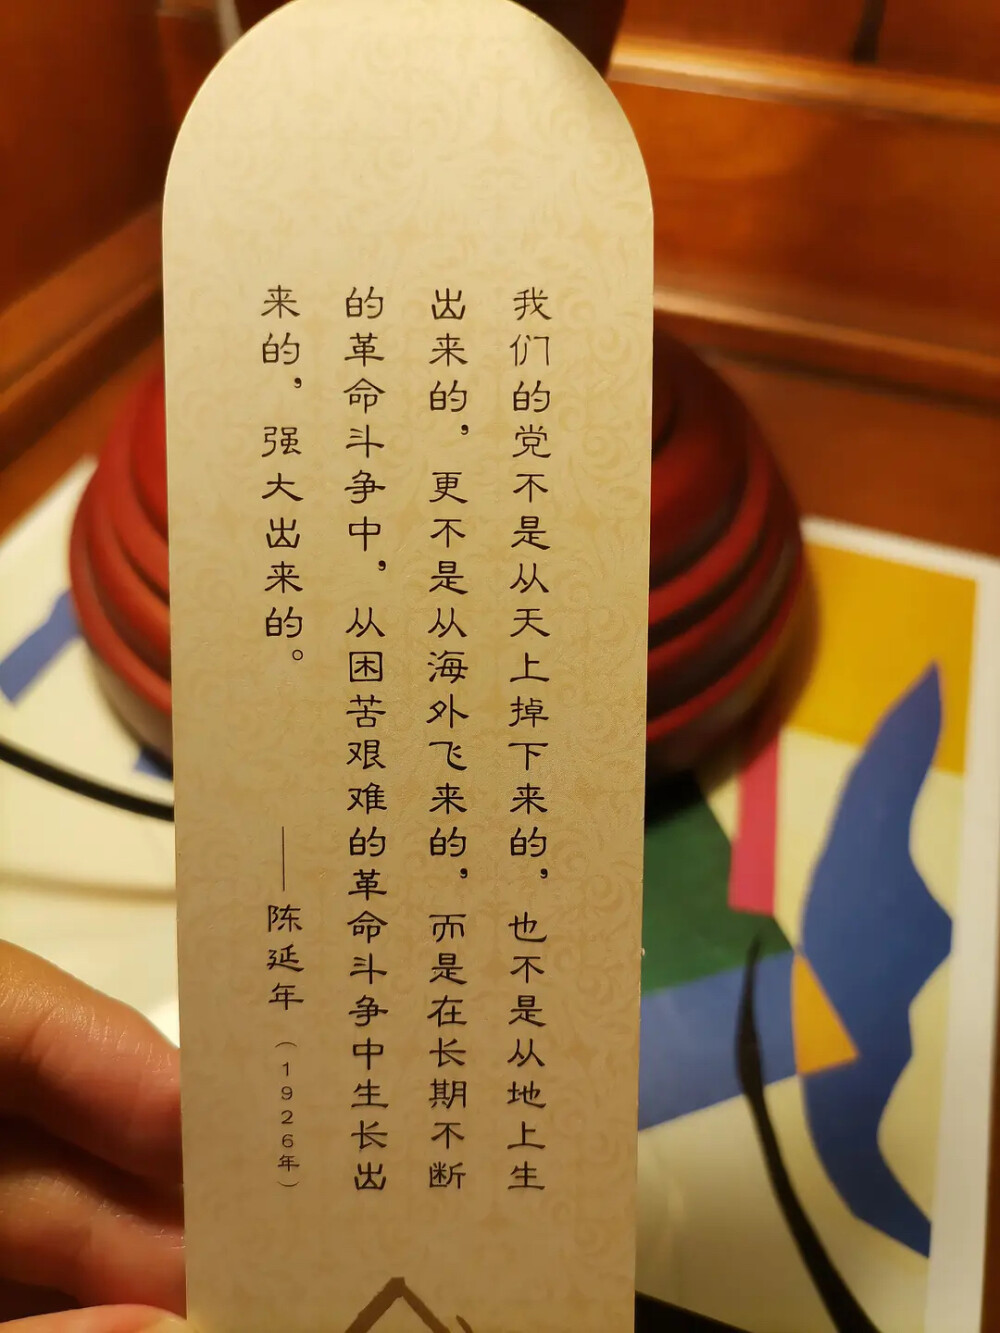 我们的党不是从天上掉下来的，也不是从地上生
出来的，更不是从海外飞来的，而是在长期不断
的革命斗争中，从困苦艰难的革命斗争中生长出
来的，强大出来的。
——陈延年（1926年）